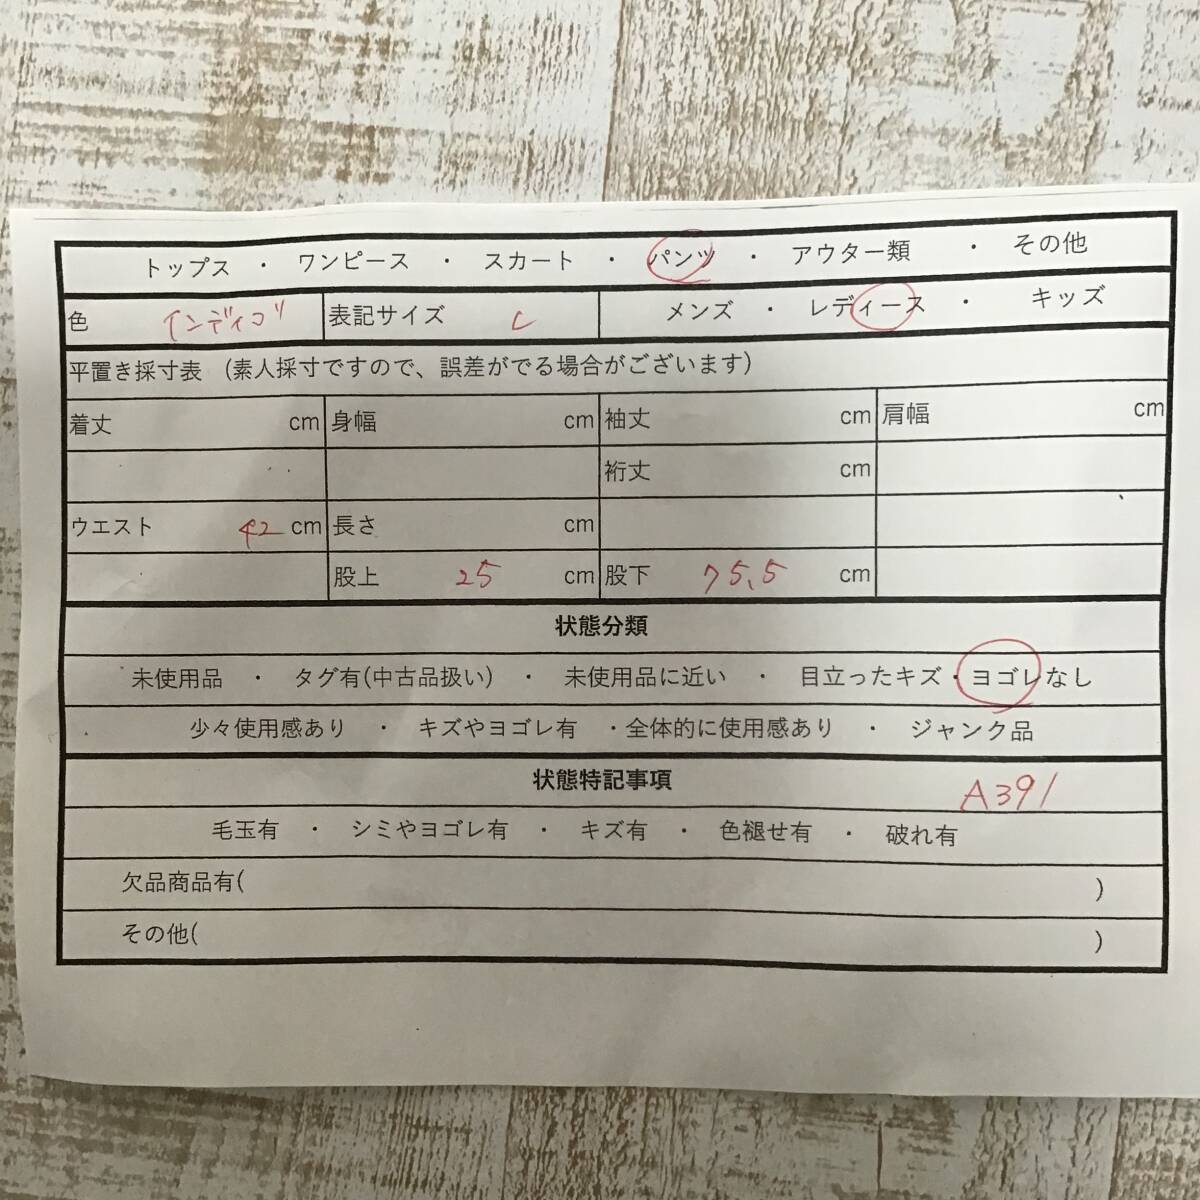 トップス ・ ワンピース ・ スカート ・ パンツ ・ アウター類 ・ その他
色 インディゴ 表記サイズ L メンズ ・ レディース ・ キッズ
平置き採寸表 (素人採寸ですので、誤差がでる場合がございます)
着丈 cm 身幅 cm 袖丈 cm 肩幅 cm
裄丈 cm
ウエスト 42 cm 長さ cm
股上 25 cm 股下 75.5 cm
状態分類
未使用品 ・ タグ有(中古品扱い) ・ 未使用品に近い ・ 目立ったキズ・ヨゴレなし
少々使用感あり ・ キズやヨゴレ有 ・全体的に使用感あり ・ ジャンク品
状態特記事項 A391
毛玉有 ・ シミやヨゴレ有 ・ キズ有 ・ 色褪せ有 ・ 破れ有
欠品商品有( )
その他( )